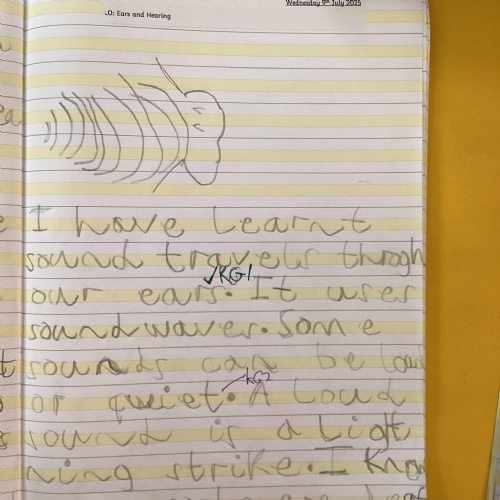 Wednesday 9th July 2025
LO: Ears and Hearing
I have learnt
sound travels throgh
✓KG1
our ears. It uses
soundwaves. Some
sounds can be loud
KG2
or quiet. A loud
sound is a light
ning strike. I know